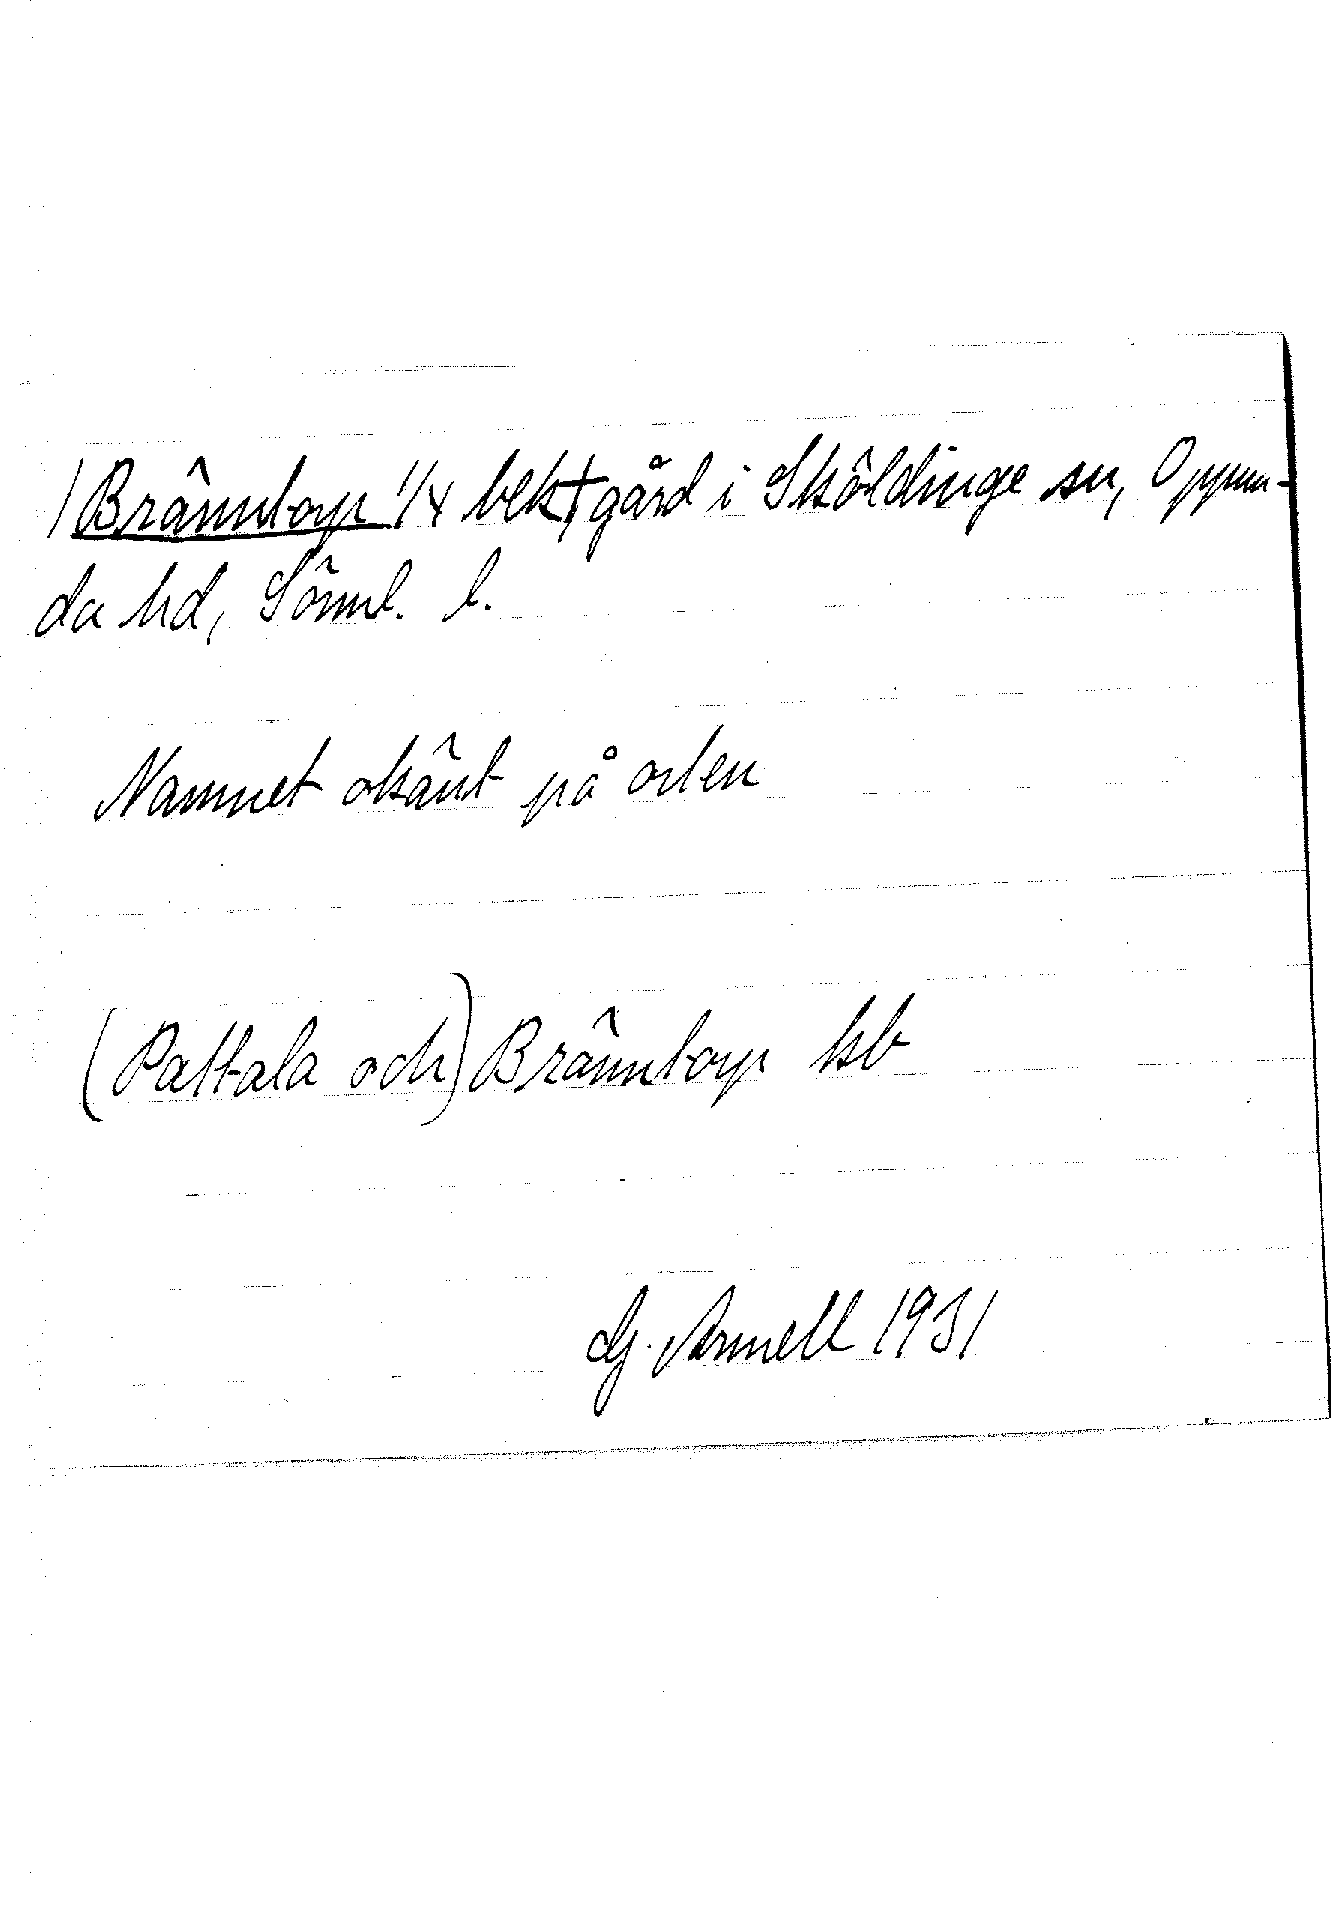 /Bränntorp 1/4 bek†gård i Sköldinge sn, Oppun-
da hd, Sörml. l.
Namnet okänt på orten
(Pattala och) Bränntorp kb
Gj. Arnell 1931